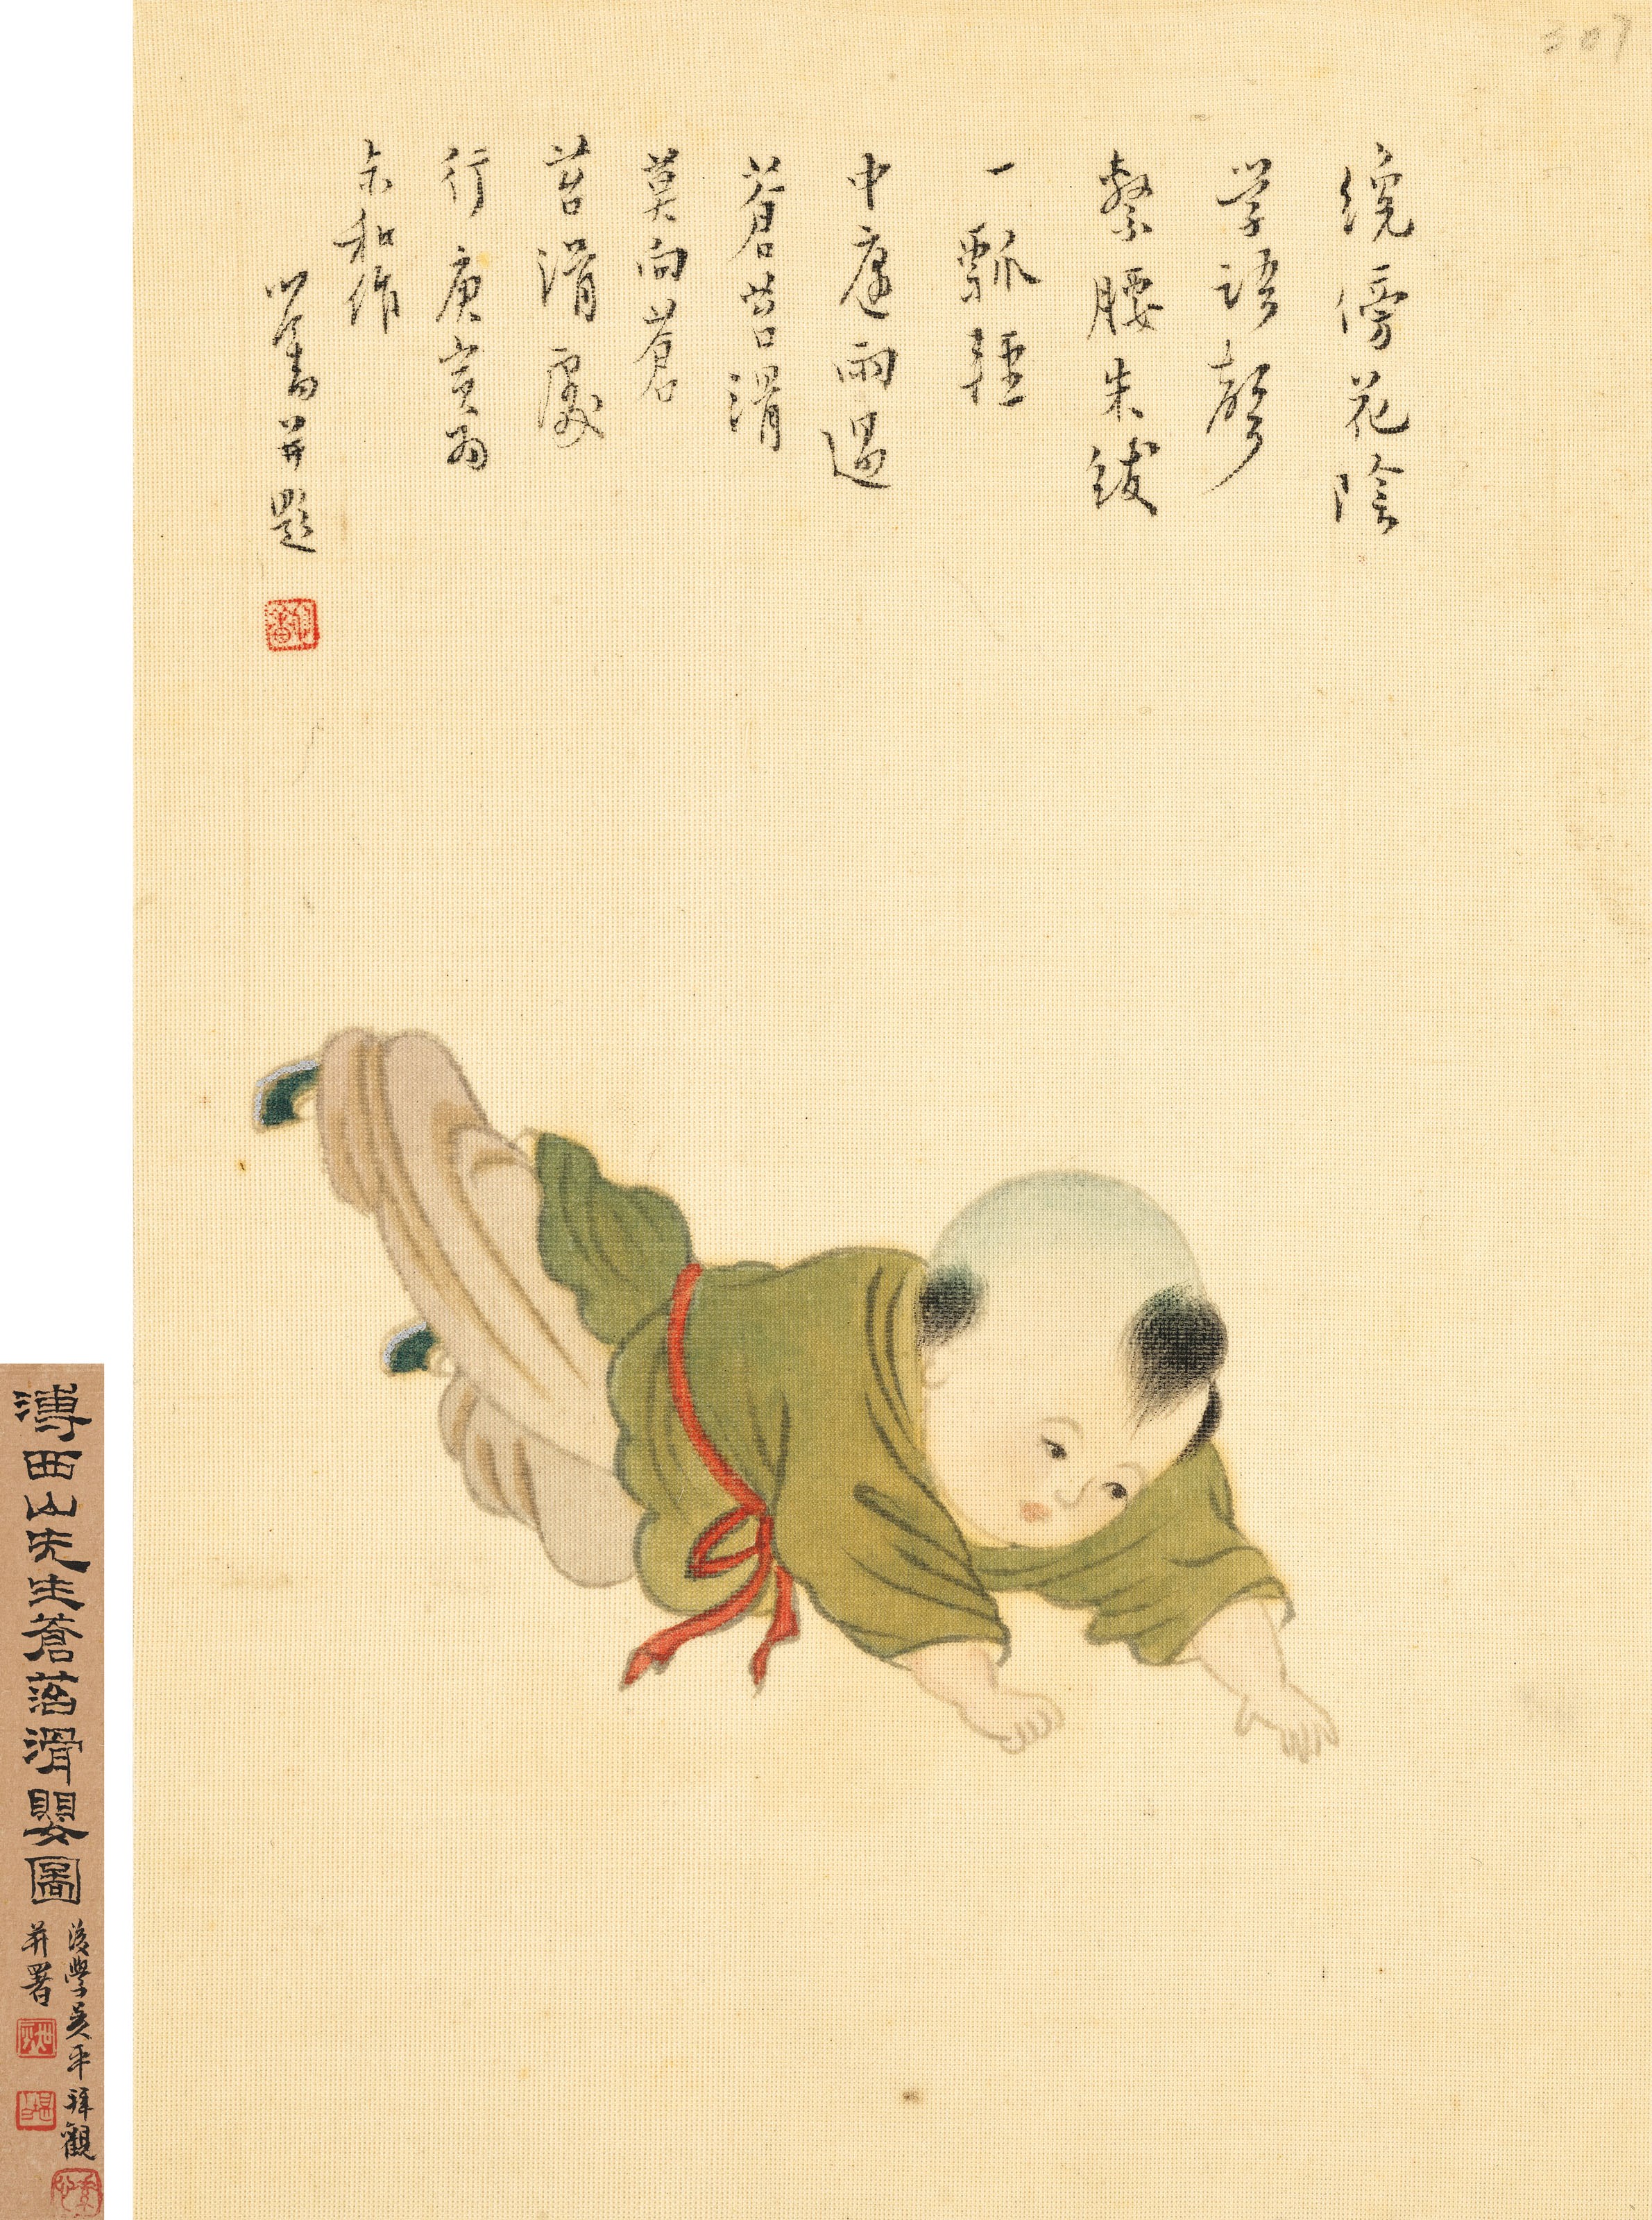 307
繞傍花陰
学語聲
繫腰朱紱
一瓢輕
中庭雨過
蒼苔滑
莫向蒼
苔滑處
行庚寅為
和作
心畬并題
溥西山先生蒼菭滑嬰圖
後學吳平拜觀
并署